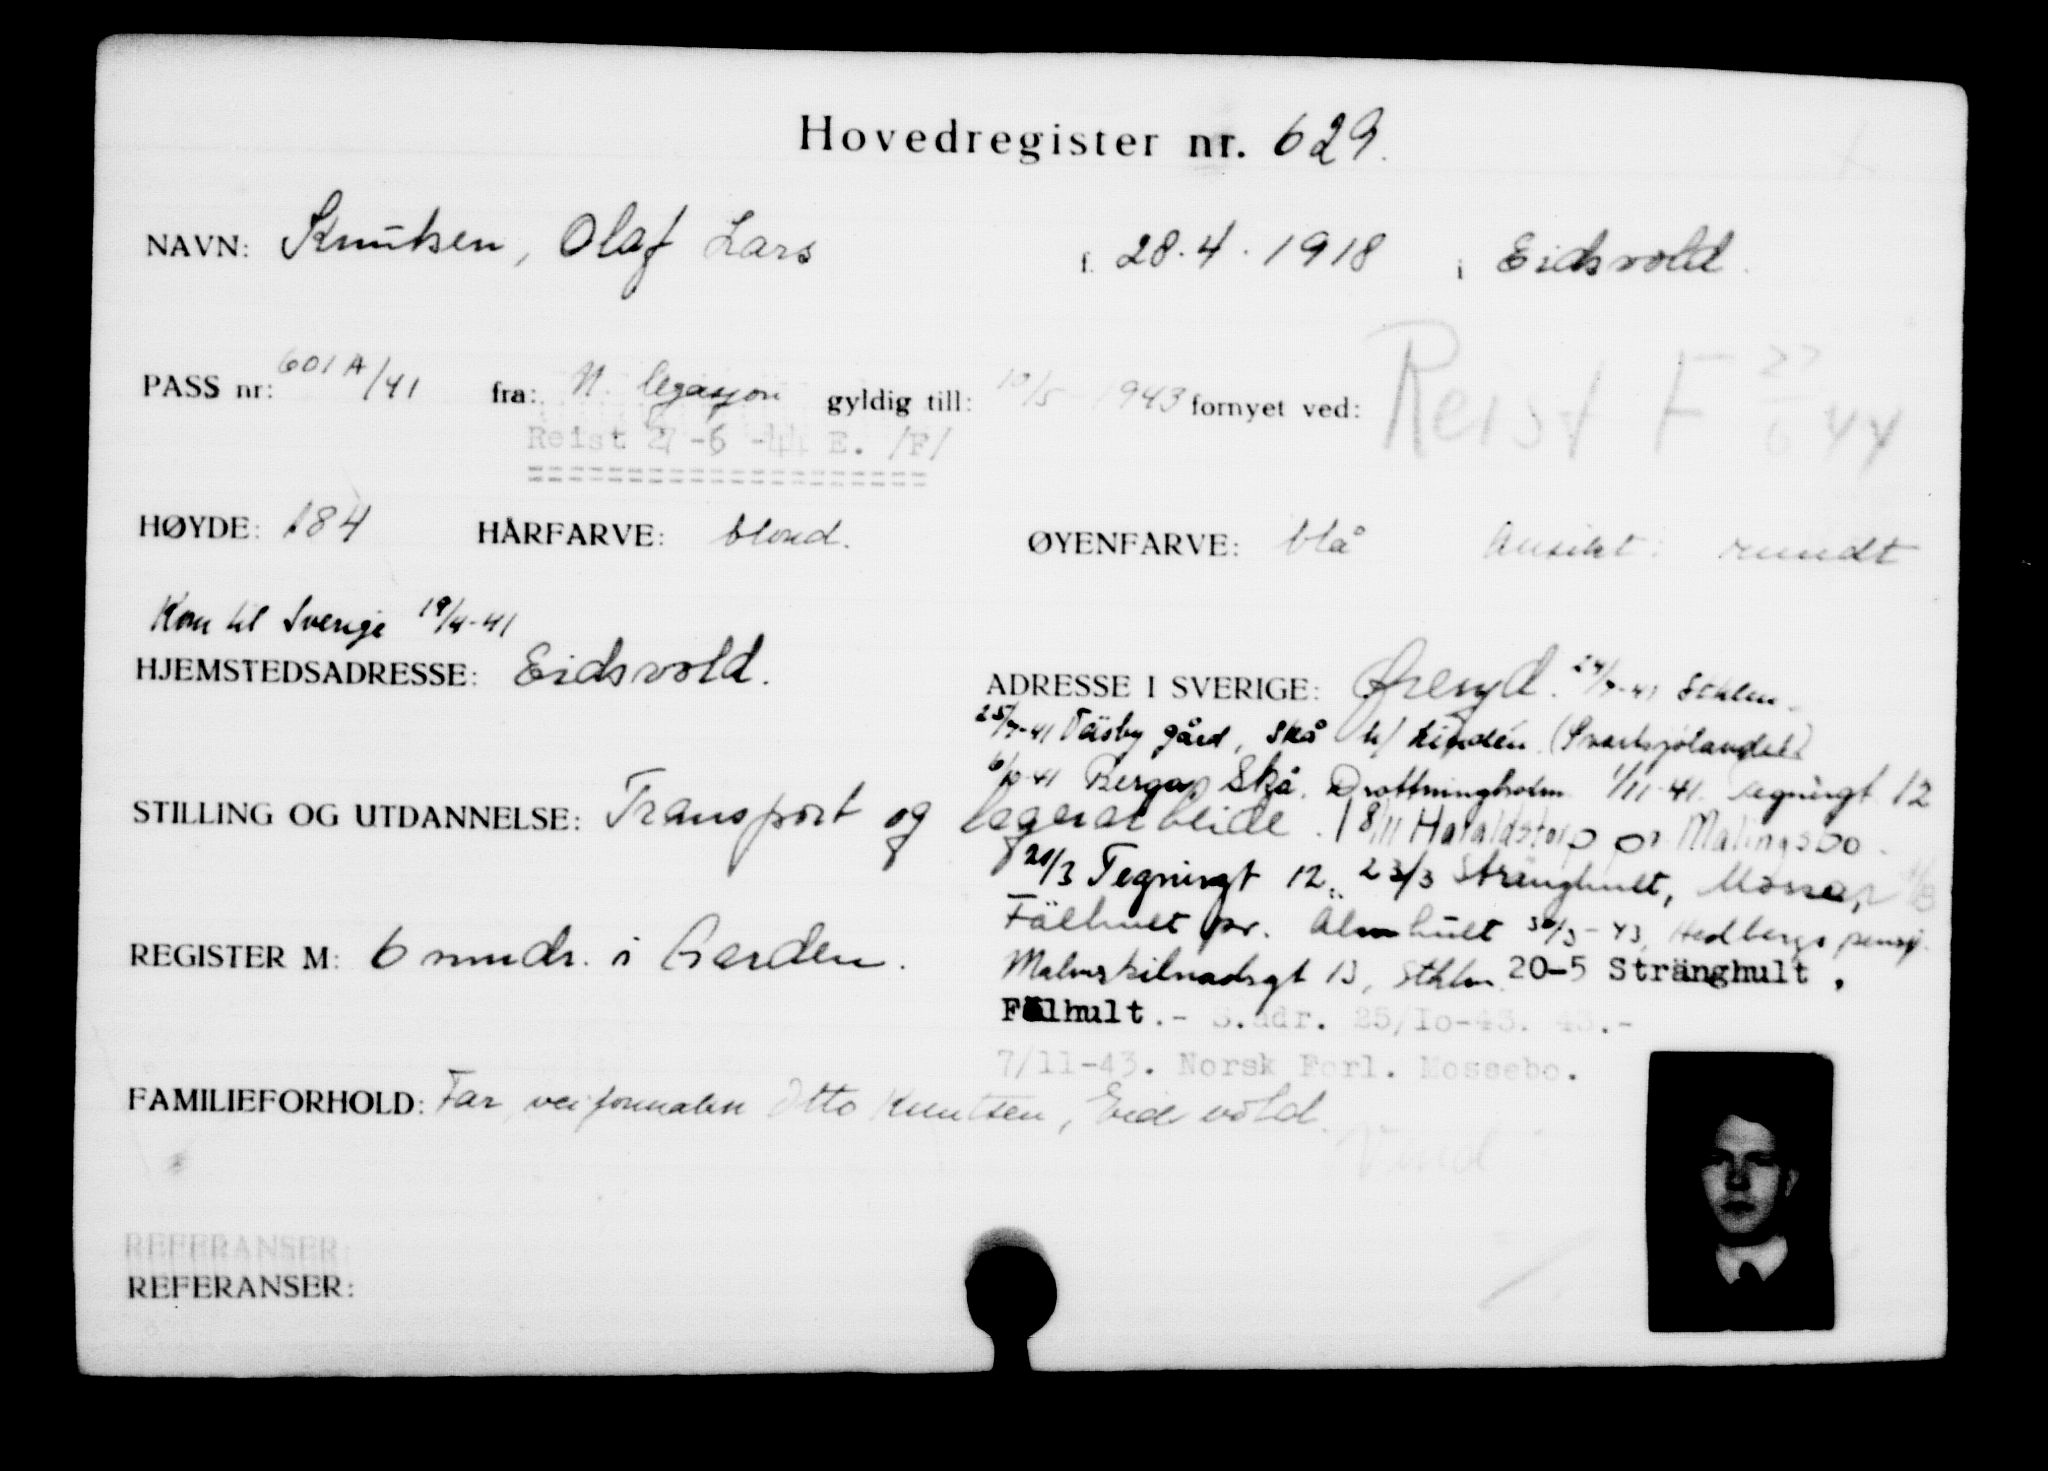 Hovedregister nr. 629.
NAVN: Knutsen, Olaf Lars f. 28.4.1918 i Eidsvold.
PASS nr: 601A/41 fra: N. legasjon gyldig till: 10/5 1943 fornyet ved: Reist F 27/6 44
Reist 27-6-44 E. /F/
HØYDE: 184 HÅRFARVE: blond. ØYENFARVE: blå Ansikt: rundt
Kom til Sverige 19/4-41
HJEMSTEDSADRESSE: Eidsvold.
ADRESSE I SVERIGE: Øreryd. 24/7-41 Sthlm.
25/7-41 Täsby gård, Skå h/ Lindén (Svartsjölandet)
6/10-41 Berga, Skå. Drottningholm 1/11-41. Tegnérgt 12
STILLING OG UTDANNELSE: Transport og lagerarbeide.
18/11 Haraldstorp pr Malingsbo.
20/3 Tegnérgt 12. 23/3 Stränghult,
Fälhult pr. Älmhult 30/3-43, Hedbergs pensj.
REGISTER M: 6 mndr. i Garden.
Malmskilnadsgt 13, Sthlm. 20-5 Stränghult,
Fälhult.- S.adr. 25/10-43. 43.-
7/11-43. Norsk Forl. Mossebo.
FAMILIEFORHOLD: Far, veiformann Otto Knutsen, Eidsvold.
Vend
REFERANSER:
REFERANSER: